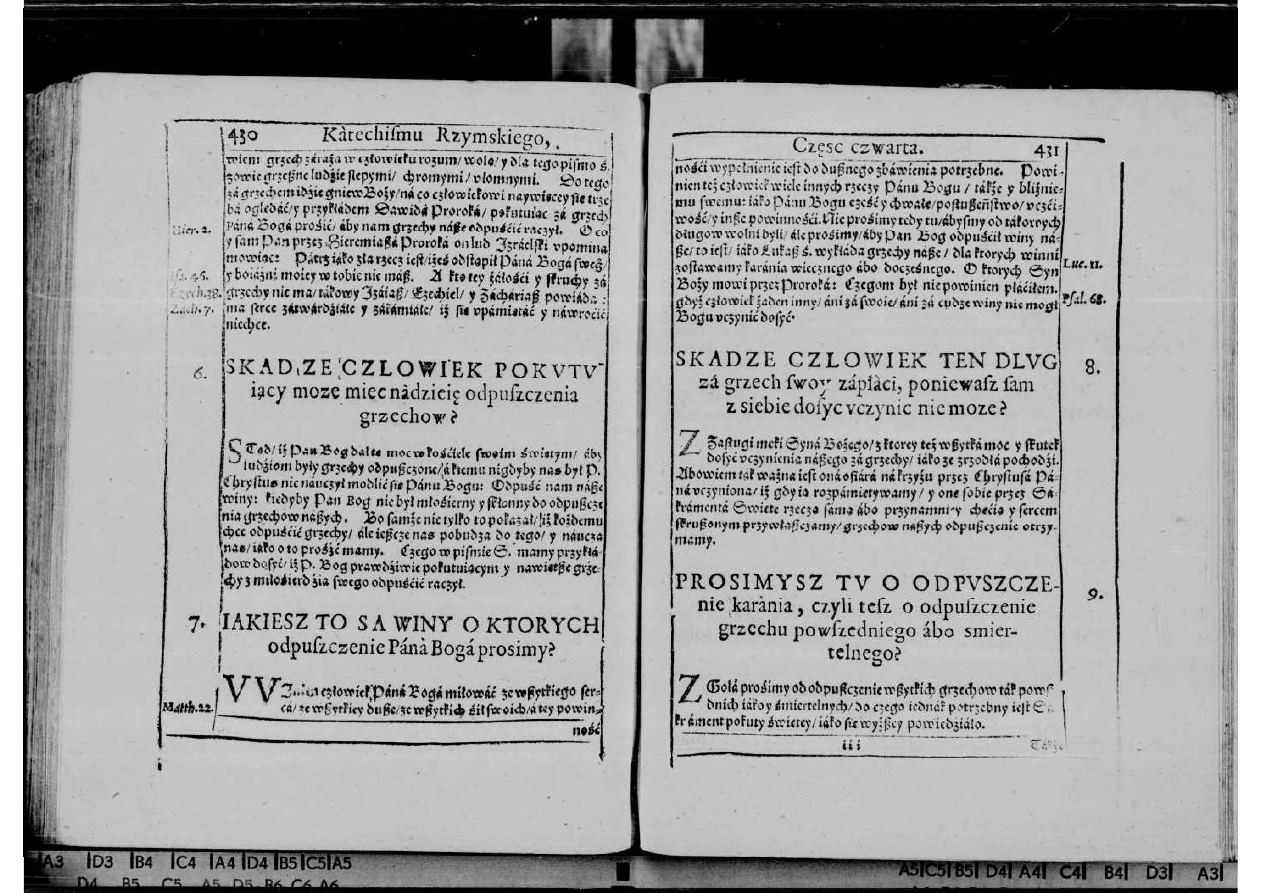 430 Kàtechiſmu Rzymskiego,
wiem grzech záraża w człowieku rozum/ wolą/ y dla tego pismo ś.
zowie grzeßne ludzie ślepymi/ chromymi/ vłomnymi. Do tego
zá grzechem idzie gniew Boży/ ná co człowiekowi naywięcey się trze
bá oglądáć/ y przykłádem Dawidá Proroká/ pokutuiąc zá grzech
Páná Bogá prośić/ áby nam grzechy náße odpuśćić raczył. O co
y sam Pan przez Hieremiaßá Proroká on lud Izráelski vpomina
mowiąc: Pátrz iáko zła rzecz iest/ iżeś odstąpił Páná Bogá swe°/
y boiáźni moiey w tobie nie máß. A kto tey żáłości y skruchy zá
grzechy nie ma/ tákowy Izáiaß/ Ezechiel/ y Záchariaß powiáda:
ma serce zátwárdźiáłe y zátámiáłe/ iż się vpámiętáć y náwroćić
niechce.
Hier. 2.
Isa. 46.
Ezech. 38.
Zach. 7.
6.
SKAD, ZE CZLOWIEK POKVTV-
iący moze miec nàdzieię odpuſzczenia
grzechow?
STąd/ iż Pan Bog dał tę moc w kośćiele swoim świętym/ áby
ludźiom były grzechy odpußczone/ á kiemu nigdyby nas był P.
Chrystus nie náuczył modlić się Pánu Bogu: Odpuść nam náße
winy: kiedyby Pan Bog nie był miłośierny y skłonny do odpußcze
nia grzechow náßych. Bo samże nie tylko to pokazał/ iż kożdemu
chce odpuśćić grzechy/ ále ießcze nas pobudza do tego/ y náucza
nas/ iáko o to prośźić mamy. Czego w piśmie S. mamy przykłá
dow dosyć/ iż P. Bog prawdźiwie pokutuiącym y nawiętße grze-
chy z miłośierdźia swego odpuśćić raczył.
7.
IAKIESZ TO SA WINY O KTORYCH
odpuſzczenie Páná Bogá prosimy?
VVInien człowiek Páná Bogá miłowáć ze wßytkiego ser-
cá/ ze wßytkiey duße/ ze wßytkich śił swoich/ á tey powin-
ność
Matth. 22.
Częsc czwarta. 431
ności wypełnienie iest do dußnego zbáwienia potrzebne. Powi-
nien też człowiek wiele innych rzeczy Pánu Bogu / tákże y bliźnie-
mu swemu: iáko Pánu Bogu cześć y chwałę/ poslußeństwo/ vczći-
wość/ y inße powinnośći. Nie prośimy tedy tu/ ábysmy od tákowych
długow wolni byli/ ále prośimy/ áby Pan Bog odpuśćił winy ná-
ße/ to iest/ iáko Łukaß ś. wykłáda grzechy náße/ dla ktorych winni
zostawamy karánia wiecznego ábo docżesnego. O ktorych Syn
Boży mowi przez Proroká: Czegom był nie powinien płáćiłem.
gdyż człowiek żaden inny/ áni zá swoie/ áni zá cudze winy nie mogł
Bogu vczynić dosyć.
Luc. 11.
Psal. 68.
SKADZE CZLOWIEK TEN DLVG
zá grzech ſwoy zápłàci, poniewaſz ſam
z siebie doſyc vczynic nie moze?
8.
Z Zasługi męki Syná Bożego/ z ktorey też wßytká moc y skutek
dosyć vczynienia náßego zá grzechy/ iáko ze zrzodłá pochodźi.
Abowiem ták ważna iest oná ofiárá ná krzyżu przez Chrystusá Pá-
ná vczyniona/ iż gdy ią rozpámiętywamy/ y onę sobie przez Sá-
krámentá Swięte rzeczą sámą ábo przynamni-y chęćią y sercem
skrußonym przywłaßczamy/ grzechow náßych odpußczenie otrzy-
mamy.
PROSIMYSZ TV O ODPVSZCZE-
nie karània, czyli teſz o odpuſzczenie
grzechu powſzedniego ábo smier-
telnego?
9.
Z Gołá prośimy od odpußczenie wßytkich grzechow ták pows
dnich iáko y śmiertelnych/ do czego iednák potrzebny iest Sá
krámęnt pokuty świętey/ iáko się wyżßey powiedźiáło.
iii Tákże
A3 D3 B4 C4 A4 D4 B5 C5 A5
D4 B5 C5 A5 D5 B6 C6 A6
A5 C5 B5 D4 A4 C4 B4 D3 A3